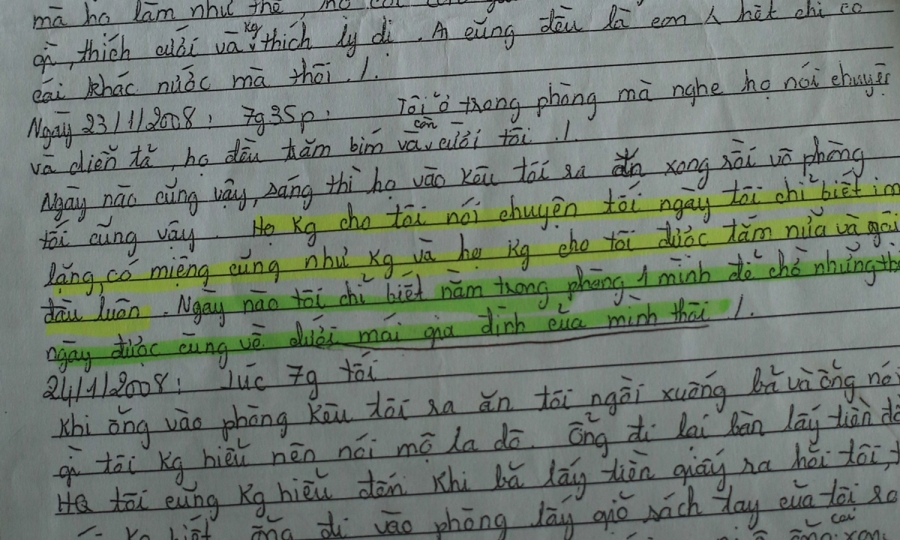 mà họ làm như thế,
gì, thích cưới và kg thích ly dị. A cũng đều là con λ hết chỉ có
cái khác nước mà thôi ./.
Ngày 23/1/2008: 7g35p: Tôi ở trong phòng mà nghe họ nói chuyện
và diễn tả, họ đều trăm bím và còn cười tôi ./.
Ngày nào cũng vậy, sáng thì họ vào kêu tôi ra ăn xong rồi vô phòng
tối cũng vậy. Họ kg cho tôi nói chuyện tối ngày tôi chỉ biết im
lặng, có miệng cũng như kg và họ kg cho tôi được tắm nữa và gội
đầu luôn. Ngày nào tôi chỉ biết nằm trong phòng 1 mình để chờ những
ngày được cùng về dưới mái gia đình của mình thôi ./.
24/1/2008: Lúc 7g tối
khi ổng vào phòng kêu tôi ra ăn tôi ngồi xuống bả và ổng nói
gì tôi kg hiểu nên nói mộ la dô. Ổng đi lại bàn lấy tiền
HQ tôi cũng kg hiểu đến khi bả lấy tiền giấy ra hỏi tôi,
ổng đi vào phòng lấy giỏ sách tay của tôi ra